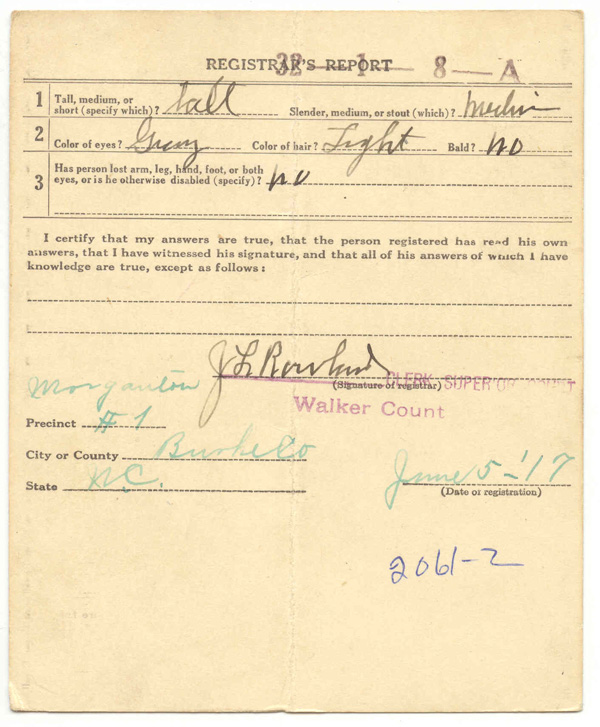 REGISTRAR'S REPORT
32 - 1 - 8 - A
1 Tall, medium, or short (specify which)? tall Slender, medium, or stout (which)?
2 Color of eyes? Gray Color of hair? Light Bald? no
3 Has person lost arm, leg, hand, foot, or both eyes, or is he otherwise disabled (specify)? no
I certify that my answers are true, that the person registered has read his own
answers, that I have witnessed his signature, and that all of his answers of which I have
knowledge are true, except as follows:
J L Rowland
(Signature of registrar) CLERK SUPERIOR COURT
Morganton
Walker Count
Precinct #1
City or County Burke Co
State N.C.
June 5-'17
(Date of registration)
2061-2